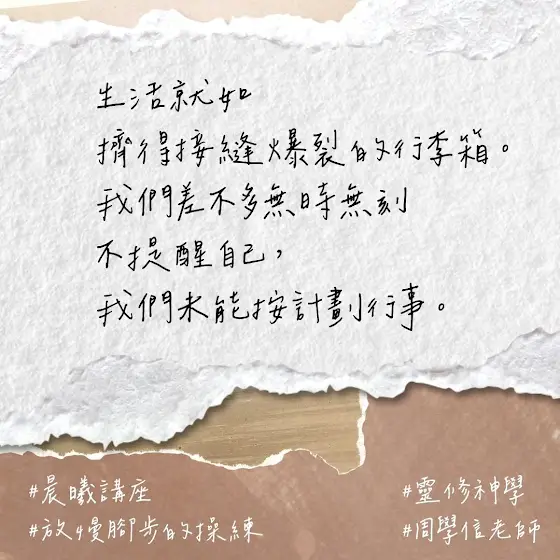 生活就如
擠得接縫爆裂的行李箱。
我們差不多無時無刻
不提醒自己，
我們未能按計劃行事。
#晨曦講座
#放慢腳步的操練
#靈修神學
#周學信老師